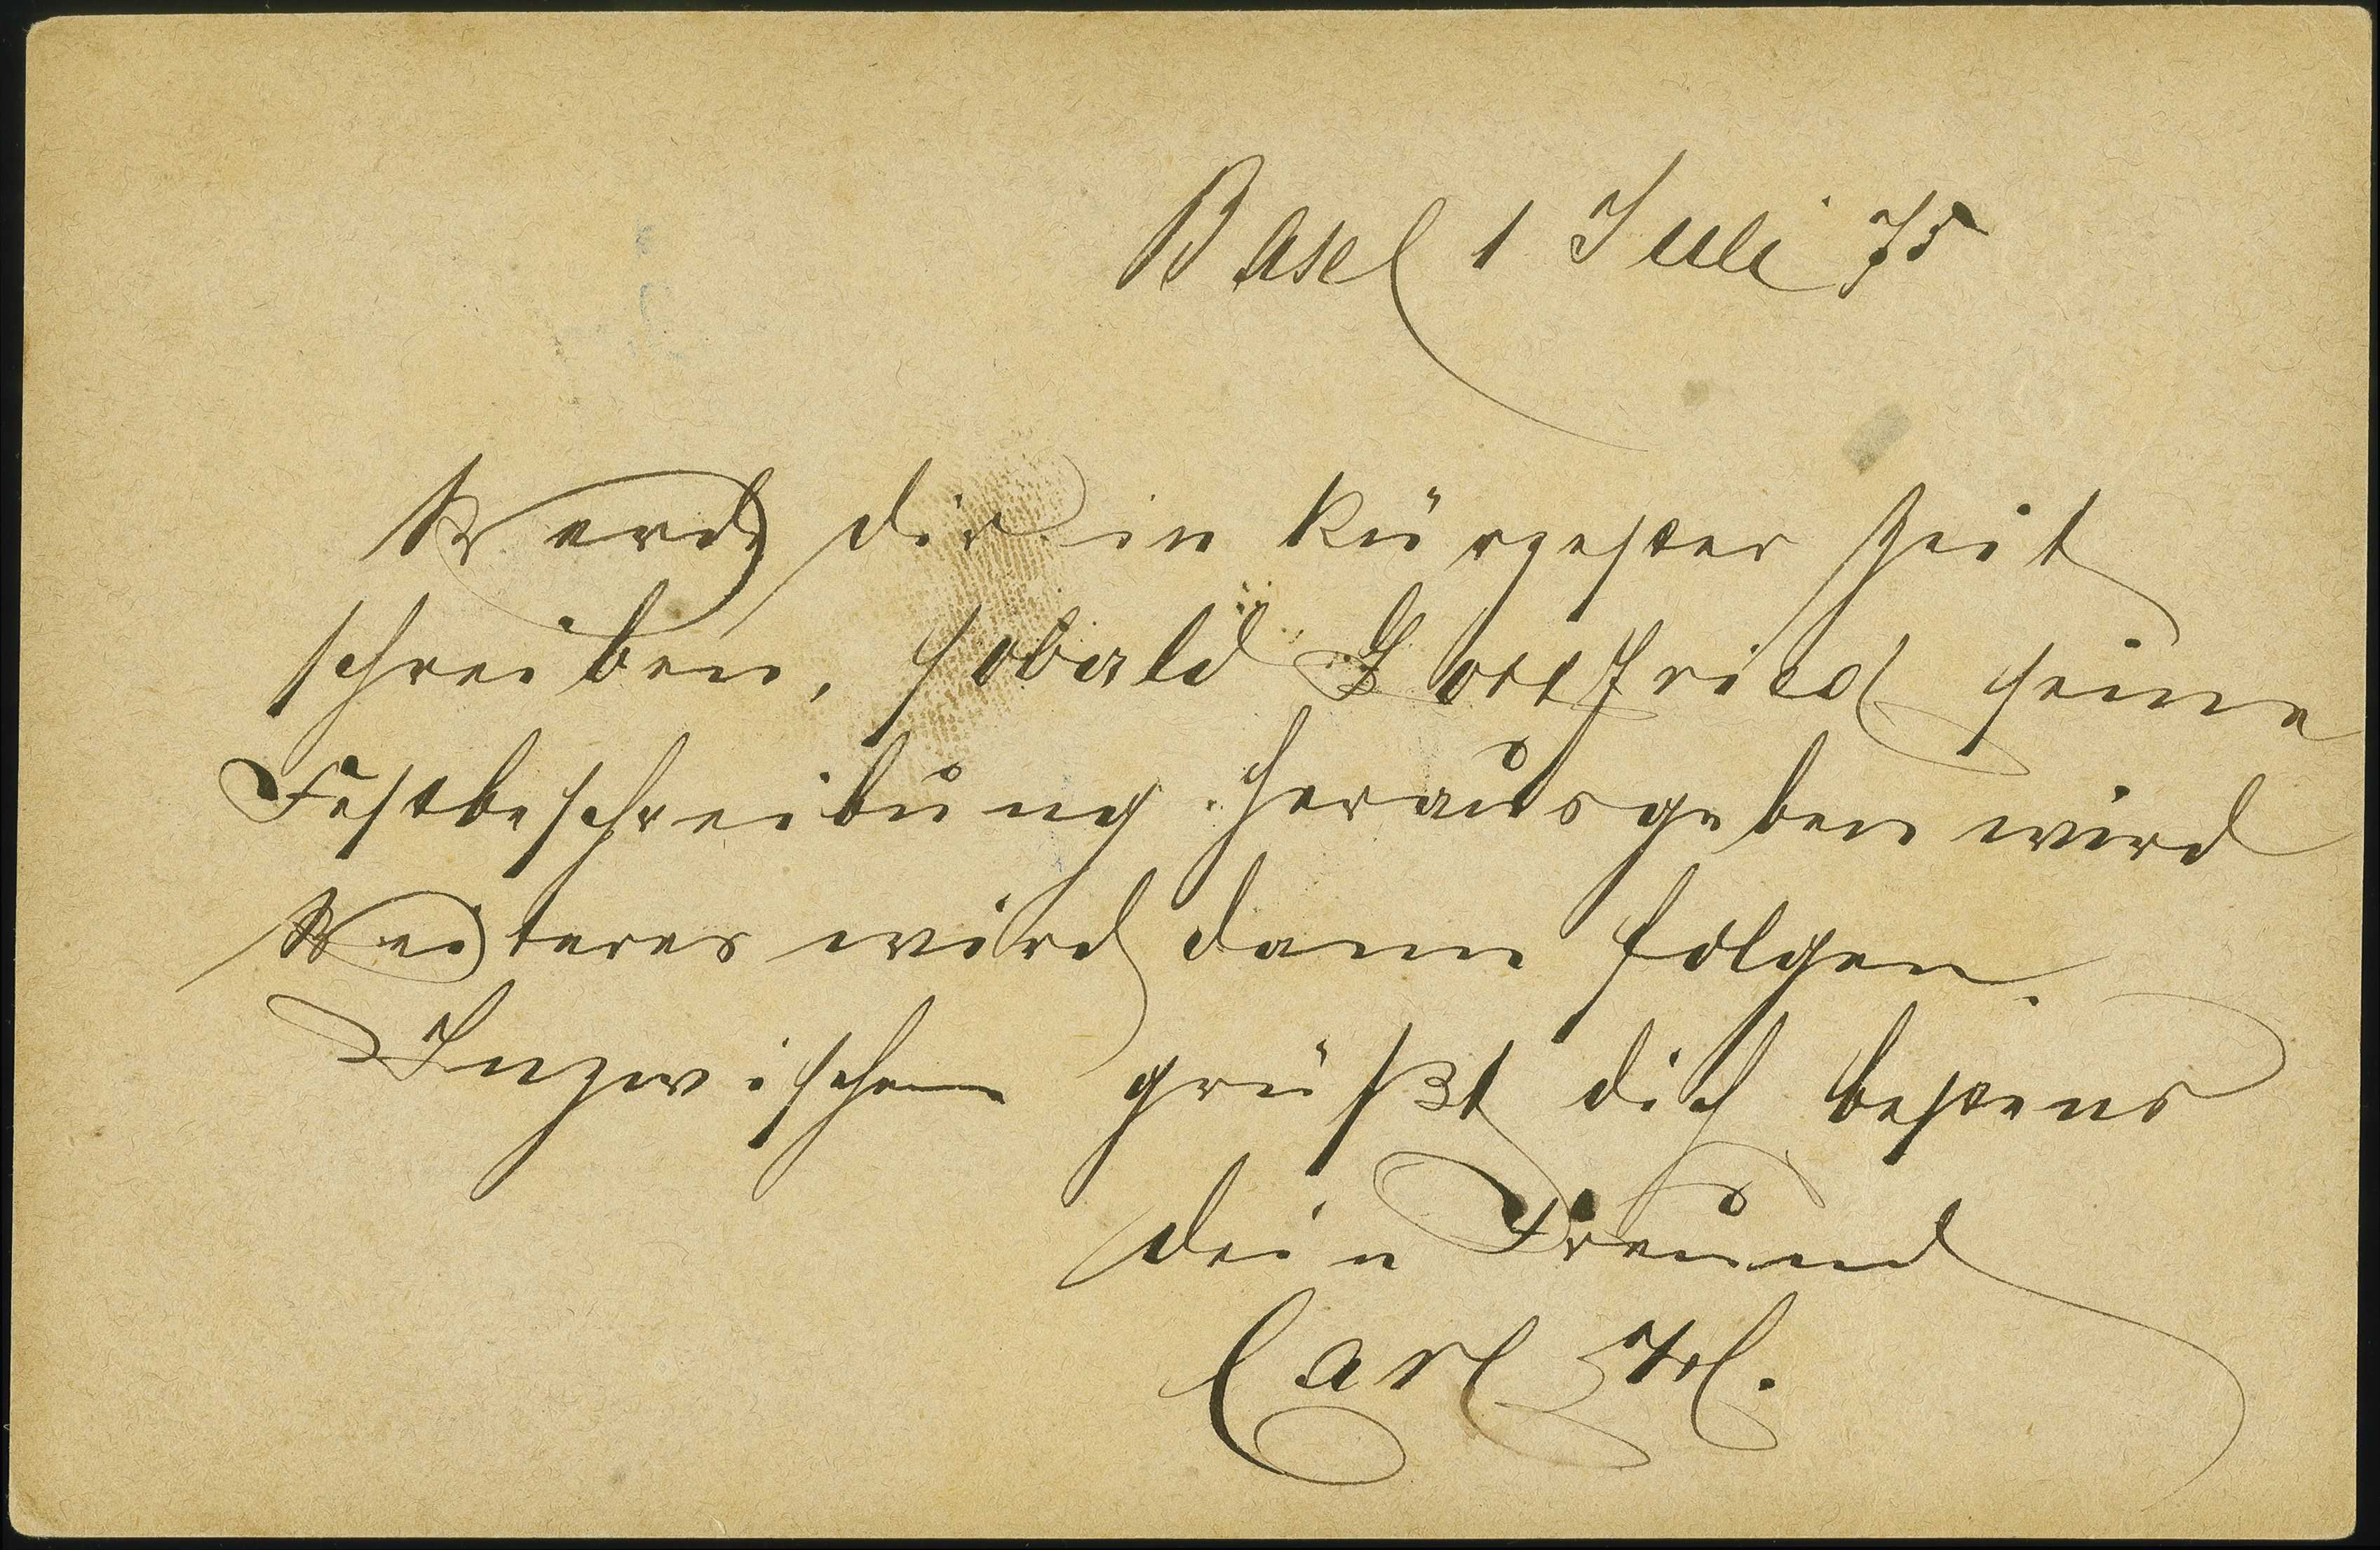 Basel 1 Juli 75
Werde dir in kürzester Zeit
schreiben, sobald Gottfried seine
Festbeschreibung herausgeben wird
Weiteres wird dann folgen.
Inzwischen grüßt dich bestens
dein Freund
Carl